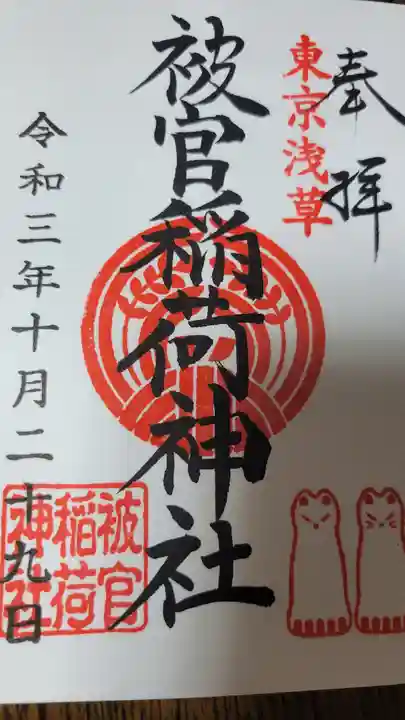 奉拝
東京浅草
被官稲荷神社
令和三年十月二十九日
被官
稲荷
神社